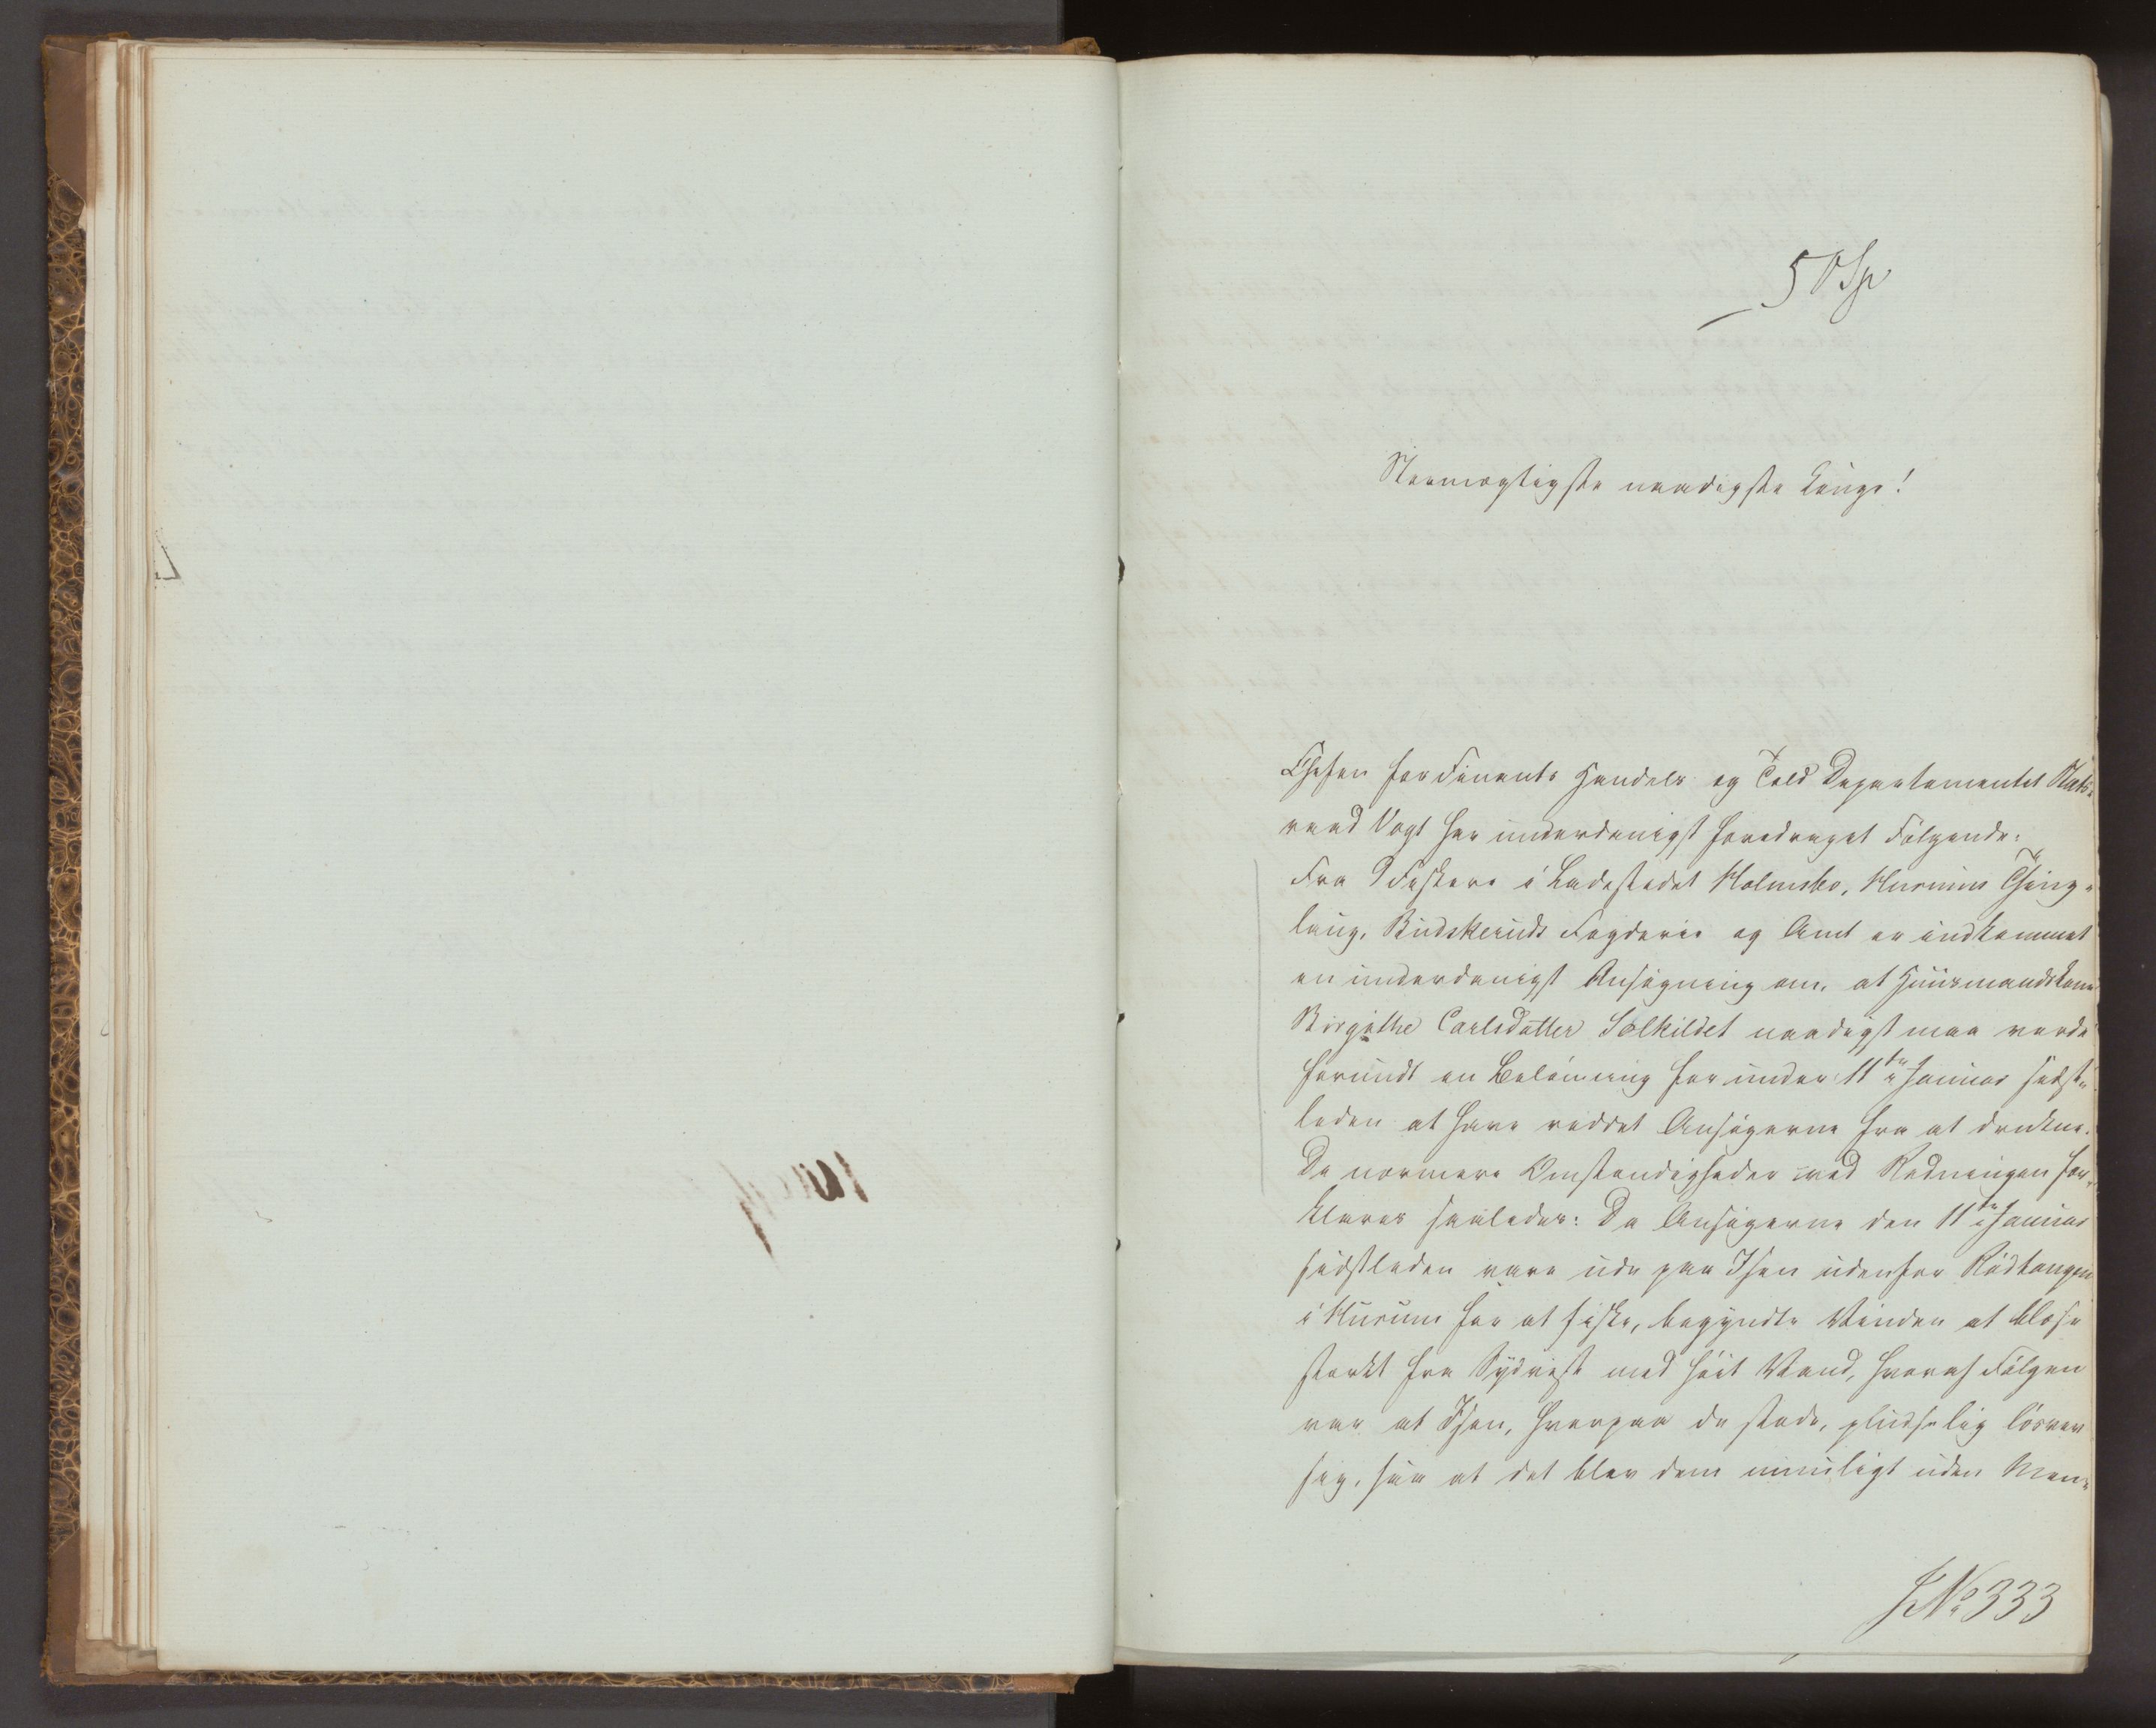 5 Sp
Stormægtigste naadigste Konge!
Chefen for Finants Handels og Told Departementet Stats-
raad Vogt har underdanigst foredraget Følgende:
Fra 9 Fiskere i Ladestedet Holmsbo, Hurums Thing-
laug, Budskeruds Fogderie og Amt er indkommet
en underdanigst Ansøgning om, at Huusmandskone
Birgithe Carlsdatter Solkildet naadigst maa vorde
forundt en Belønning for under 11te Januar sidst-
leden at have reddet Ansøgerne fra at drukne.
De nærmere Omstændigheder ved Redningen for-
klares saaledes: Da Ansøgerne den 11te Januar
sidstleden vare ude paa Isen udenfor Rødtangen
i Hurum for at fiske, begyndte Vinden at blæse
stærkt fra Sydvest med høit Vand, hvoraf Følgen
var at Isen, hvorpaa de stode, pludselig løsrev
sig, saa at det blev dem umuligt uden Men-
J No 333